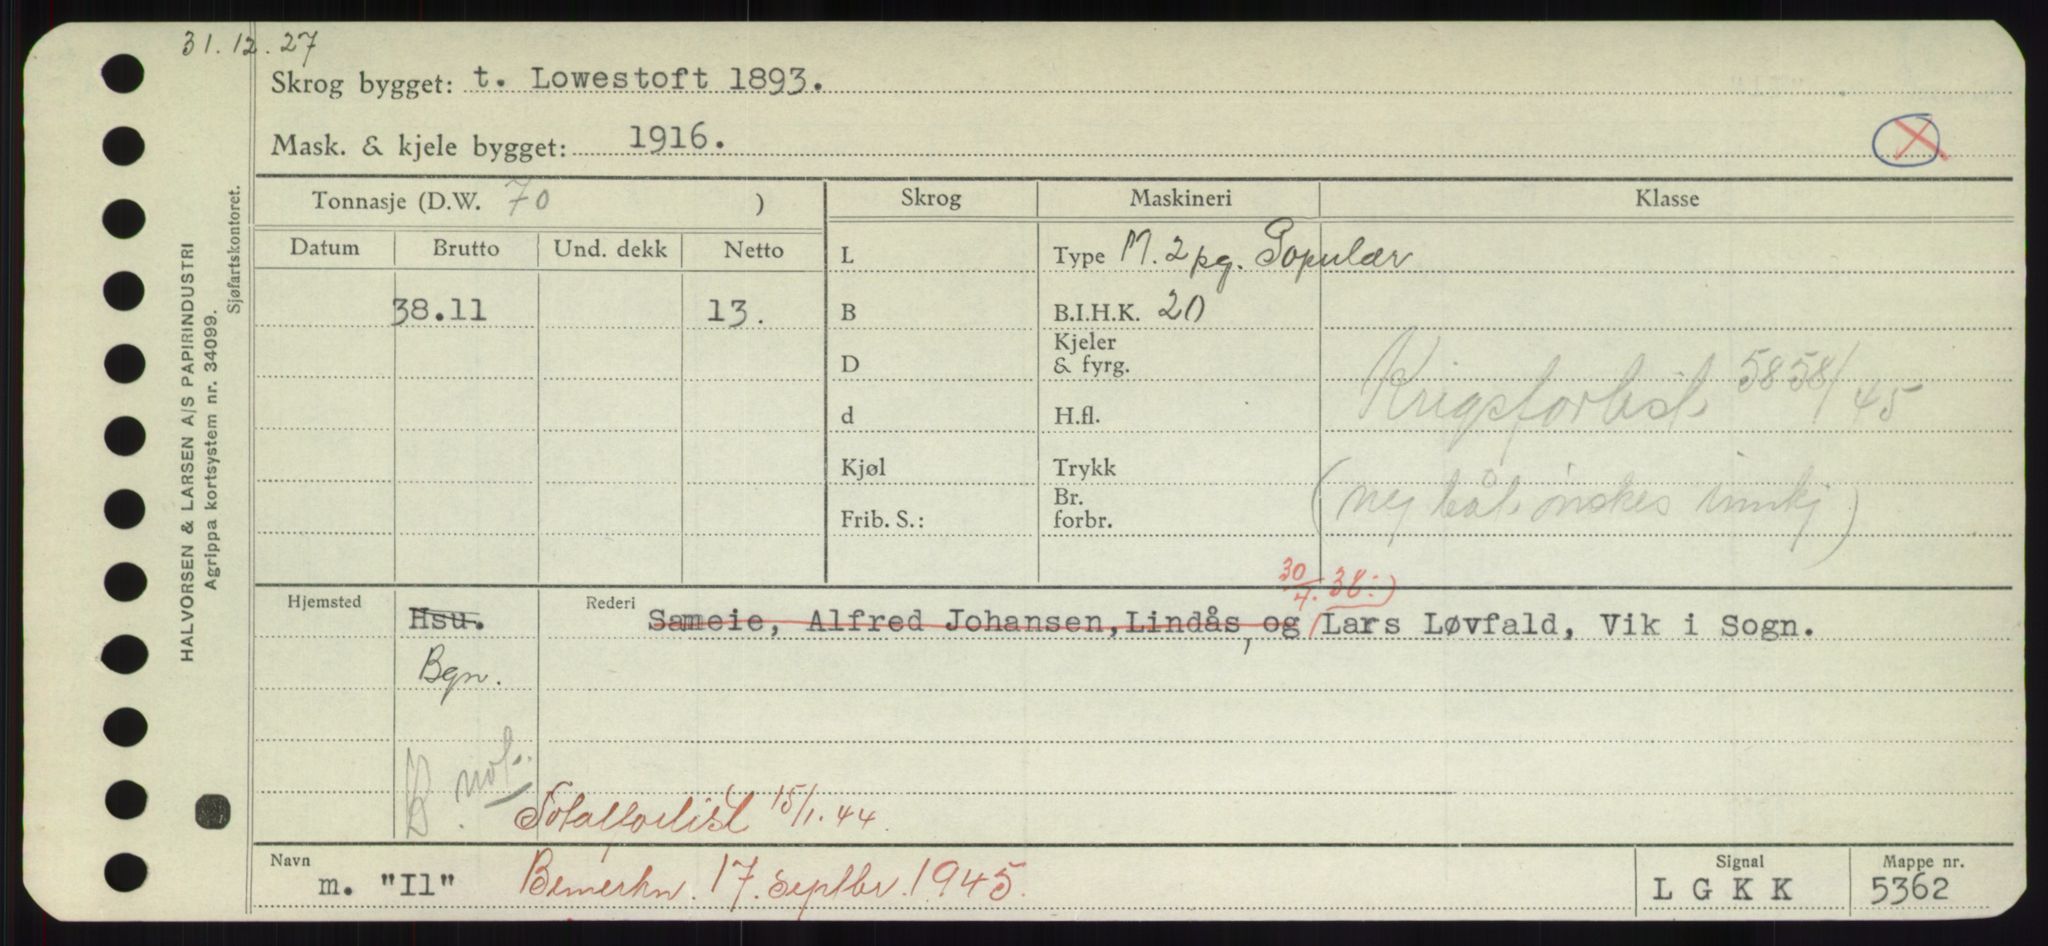 31.12.27
Skrog bygget: t. Lowestoft 1893.
Mask. & kjele bygget: 1916.
HALVORSEN & LARSEN A/S PAPIRINDUSTRI
Agrippa kortsystem nr. 34099.
Sjøfartskontoret.
Tonnasje (D.W. 70 ) Skrog Maskineri Klasse
Datum Brutto Und. dekk Netto
L Type M. 2 pg. Populær
38.11 13. B B.I.H.K. 20
D Kjeler & fyrg.
Krigsforlist 5858/45
d H.fl.
Kjøl Trykk
Frib. S.: Br. forbr.
ønskes
30/4. 38:)
Hjemsted Hsu. Rederi Sameie, Alfred Johansen, Lindås, og Lars Løvfald, Vik i Sogn.
Bgn.
Totalforlist 15/1.44.
Navn m. "Il" Bemerkn. 17. septbr. 1945. Signal L G K K Mappe nr. 5362